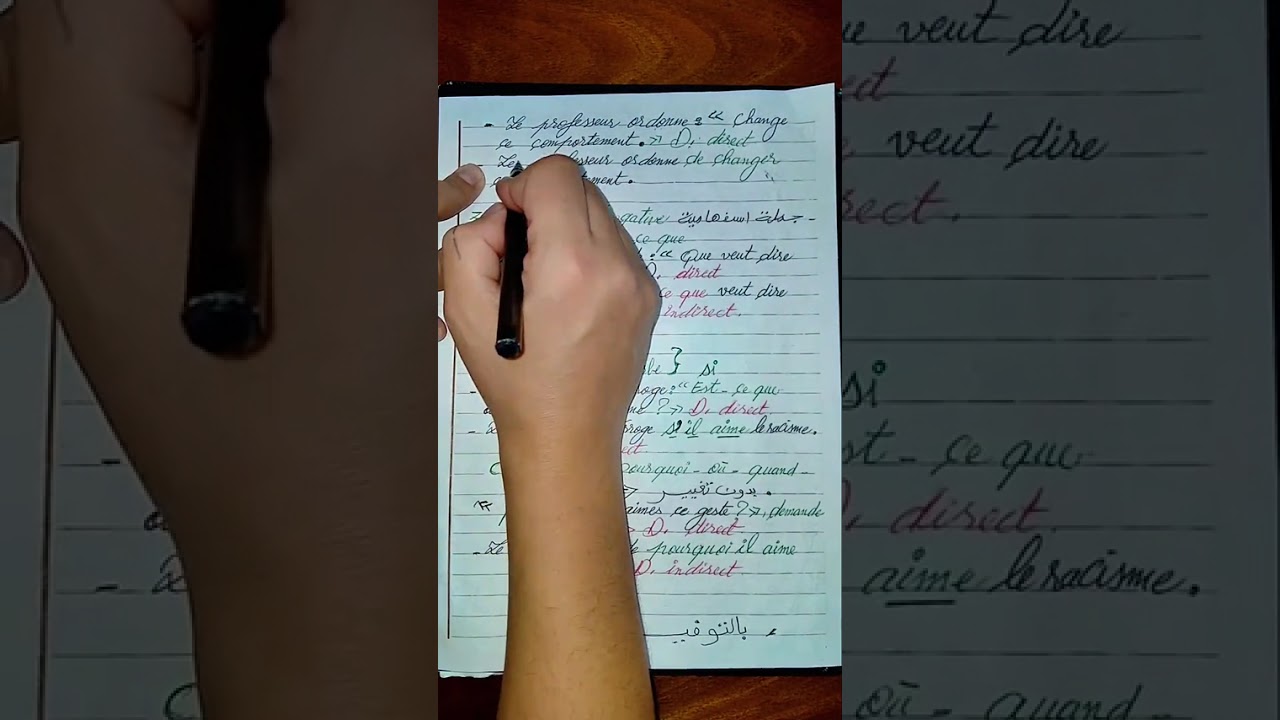 - Le professeur ordonne : " Change
ce comportement. → D, direct
- Le fesseur ordonne de changer
tement.
gative جملة استفهامية -
ce que
: " Que veut dire
D, direct
ce que veut dire
indirect.
} si
roge : " Est - ce que
? → D, direct
roge si il aime le racisme.
ct
pourquoi - où - quand -
بدون تغيير.
aimes ce geste ? → , demande
D, direct
- Le pourquoi il aime
D, indirect.
بالتوفيـ